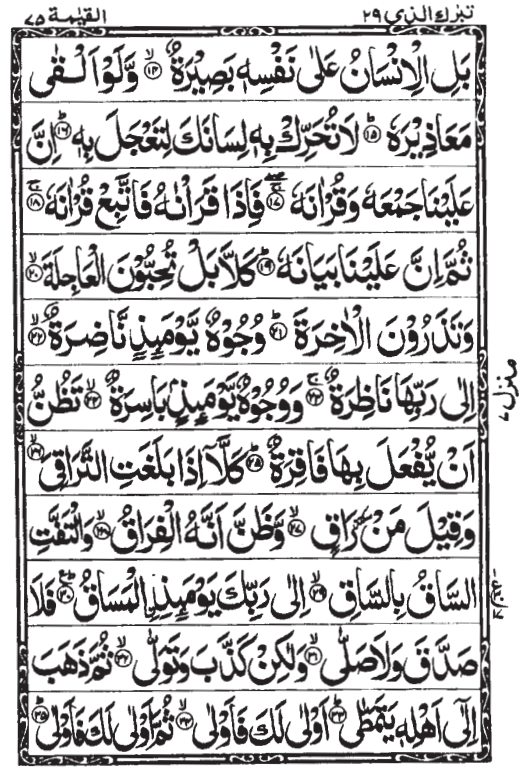 تبٰرك الذي ٢٩
القيٰمة ٧٥
بَلِ الْاِنْسَانُ عَلٰى نَفْسِهٖ بَصِيْرَةٌ ۙ۝١٤ وَّلَوْ اَلْقٰى
مَعَاذِيْرَهٗ ؕ۝١٥ لَا تُحَرِّكْ بِهٖ لِسَانَكَ لِتَعْجَلَ بِهٖ ؕ۝١٦ اِنَّ
عَلَيْنَا جَمْعَهٗ وَقُرْاٰنَهٗ ۚۖ۝١٧ فَاِذَا قَرَاْنٰهُ فَاتَّبِعْ قُرْاٰنَهٗ ۚ۝١٨
ثُمَّ اِنَّ عَلَيْنَا بَيَانَهٗ ؕ۝١٩ كَلَّا بَلْ تُحِبُّوْنَ الْعَاجِلَةَ ۙ۝٢٠
وَتَذَرُوْنَ الْاٰخِرَةَ ؕ۝٢١ وُجُوْهٌ يَّوْمَىِٕذٍ نَّاضِرَةٌ ۙ۝٢٢
اِلٰى رَبِّهَا نَاظِرَةٌ ۚ۝٢٣ وَوُجُوْهٌ يَّوْمَىِٕذٍۭ بَاسِرَةٌ ۙ۝٢٤ تَظُنُّ
اَنْ يُّفْعَلَ بِهَا فَاقِرَةٌ ؕ۝٢٥ كَلَّاۤ اِذَا بَلَغَتِ التَّرَاقِيَ ۙ۝٢٦
وَقِيْلَ مَنْ ٚ رَاقٍ ۙ۝٢٧ وَّظَنَّ اَنَّهُ الْفِرَاقُ ۙ۝٢٨ وَالْتَفَّتِ
السَّاقُ بِالسَّاقِ ۙ۝٢٩ اِلٰى رَبِّكَ يَوْمَىِٕذِ ِۨالْمَسَاقُ ؕ۝٣٠ فَلَا
صَدَّقَ وَلَا صَلّٰى ۙ۝٣١ وَلٰكِنْ كَذَّبَ وَتَوَلّٰى ۙ۝٣٢ ثُمَّ ذَهَبَ
اِلٰۤى اَهْلِهٖ يَتَمَطّٰى ؕ۝٣٣ اَوْلٰى لَكَ فَاَوْلٰى ۙ۝٣٤ ثُمَّ اَوْلٰى لَكَ فَاَوْلٰى ؕ۝٣٥
منزل ٧